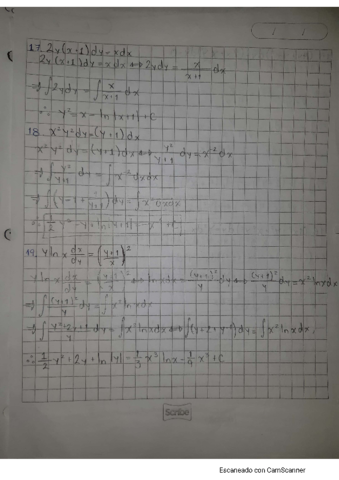 17. 2y(x+1)dy=xdx
2y(x+1)dy=xdx ⟷ 2ydy = x/(x+1) dx
⇒ ∫2ydy = ∫ x/(x+1) dx
∴ y²=x-ln|x+1|+C
18. x²y²dy=(y+1)dx
x²y²dy=(y+1)dx ⟷ y²/(y+1) dy=x⁻²dx
⇒ ∫ y²/(y+1) dy = ∫x⁻²dx
19. y ln x dx/dy = ((y+1)/x)²
⇒ ∫ (y+1)²/y dy = ∫x² ln x dx
⇒ ∫ (y²+2y+1)/y dy = ∫x² ln x dx ⟷ ∫(y+2+y⁻¹)dy = ∫x² ln x dx.
∴ 1/2 y²+2y+ln|y|= 1/3 x³ ln x - 1/9 x³+C
Scribe
Escaneado con CamScanner